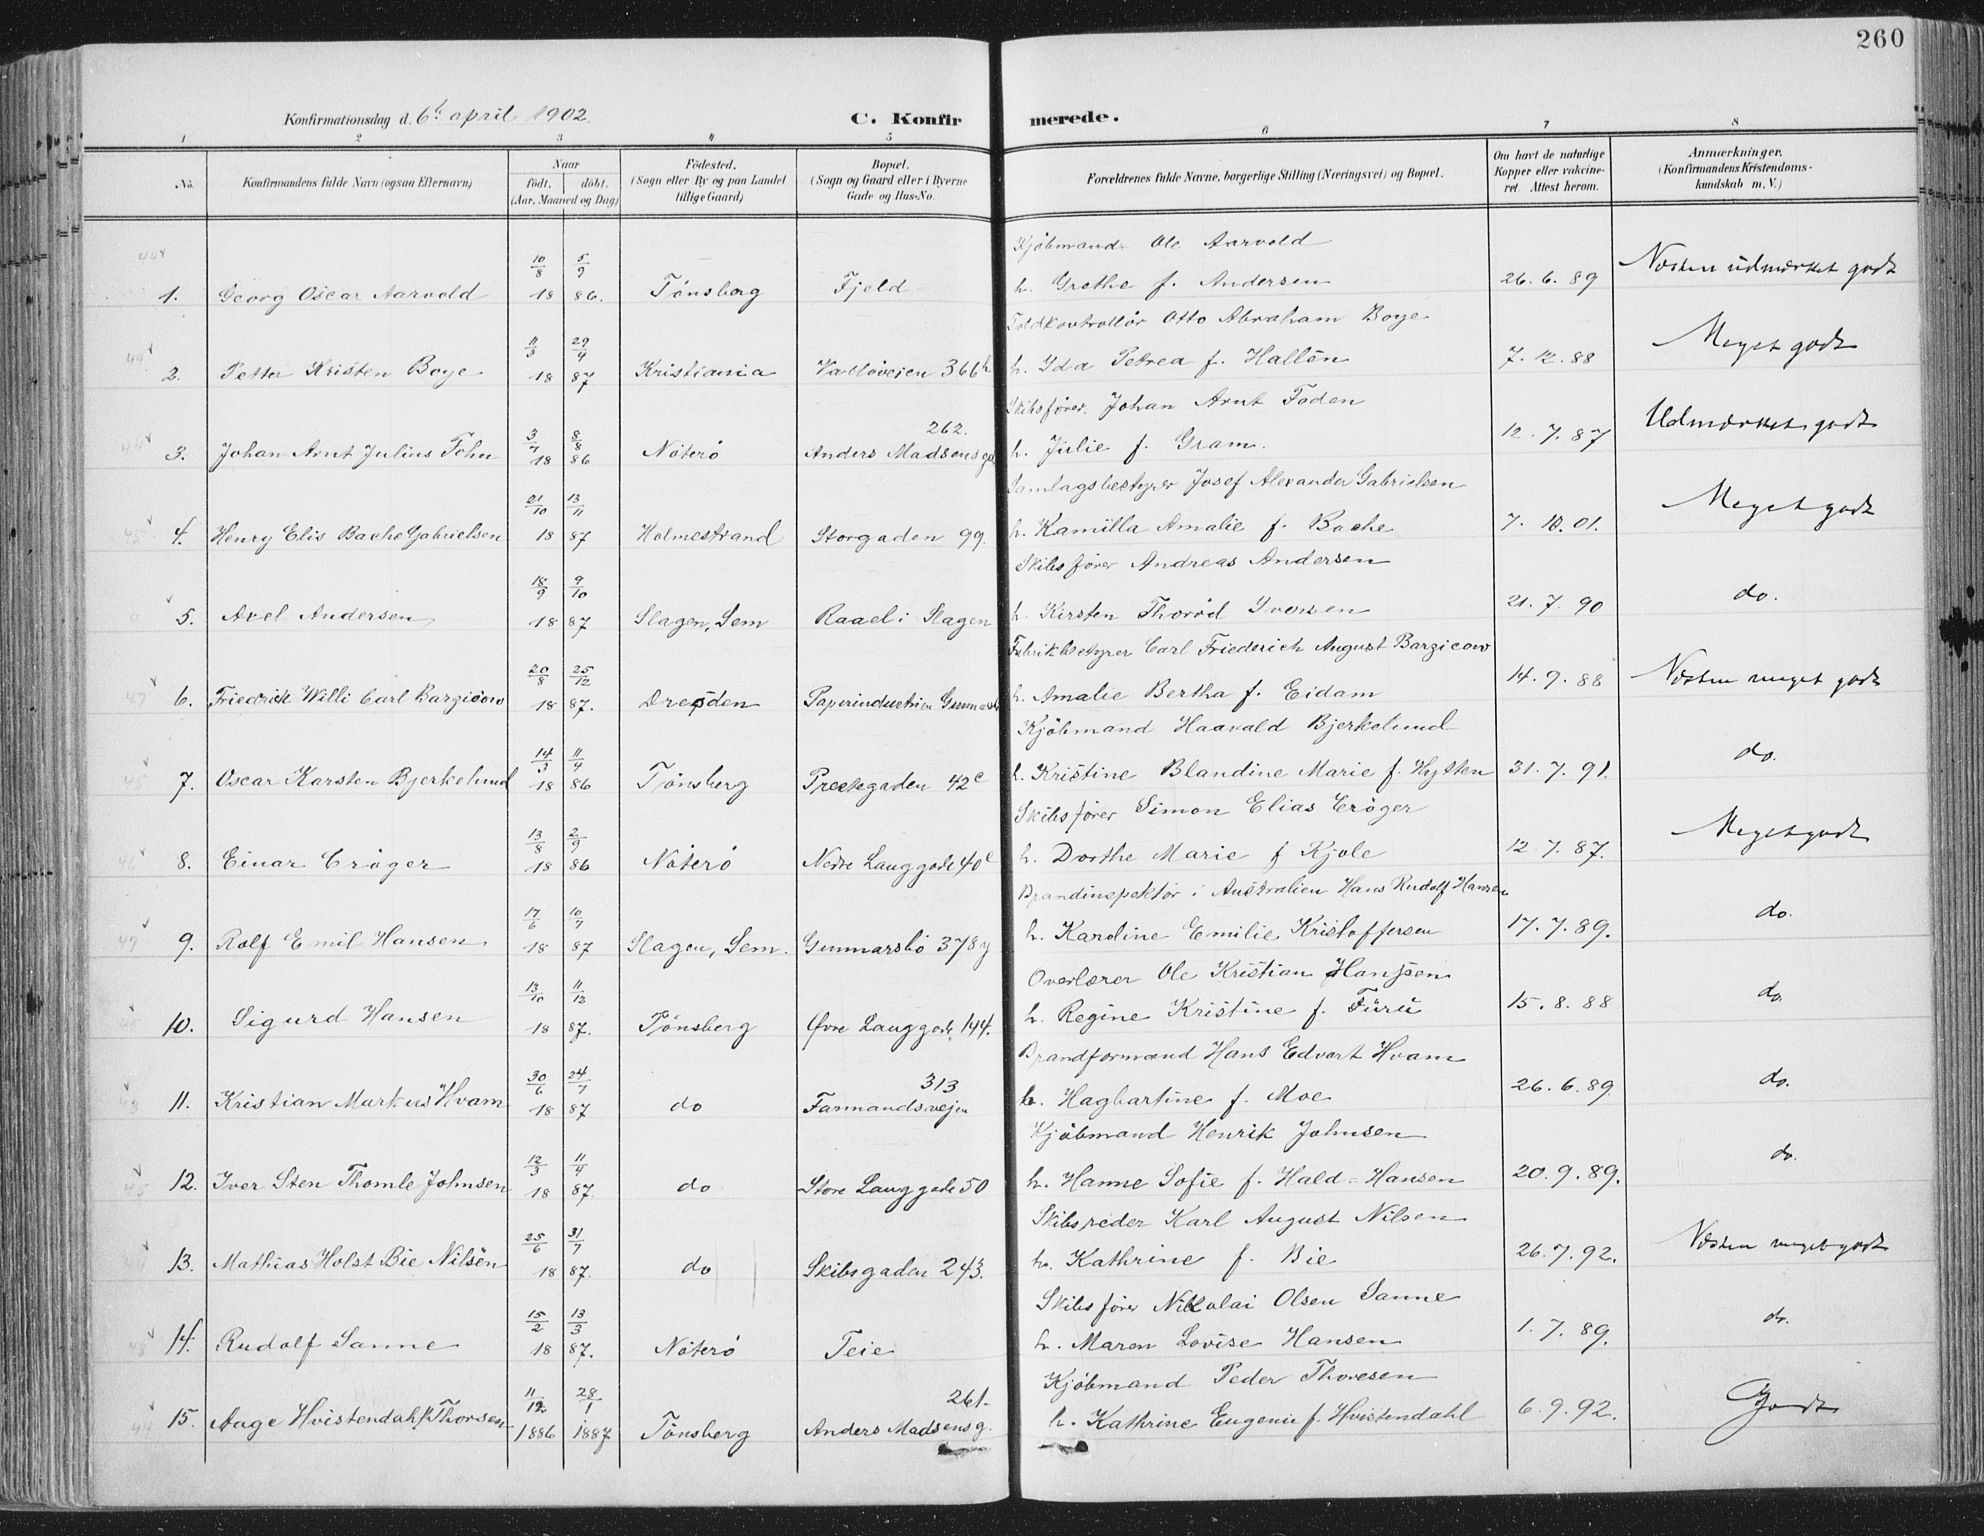 260
Konfirmationsdag d. 6t april 1902. C. Konfir merede.
1 2 3 4 5 6 7 8
No. Konfirmandens fulde Navn (ogsaa Efternavn) Naar födt. döbt. (Aar, Maaned og Dag) Födested. (Sogn eller By og paa Landet tillige Gaard) Bopæl. (Sogn og Gaard eller i Byerne Gade og Hus-No. Forældrenes fulde Navne, borgerlige Stilling (Næringsvei) og Bopæl. Om havt de naturlige Kopper eller vakcineret. Attest herom. Anmærkninger. (Konfirmandens Kristendomskundskab m. V.)
10/8 5/9 Kjöbmand Ole Aarvold
1. Georg Oscar Aarvold 18 86. Tönsberg Fjeld h. Grethe f. Andersen 26.6.89 Næsten udmærket godt
11/3 29/4 Toldkontrollör Otto Abraham Boye
2. Petter Kristen Boye 18 87 Kristiania Vallöveien 366h h. Yda Petrea f. Hallén 7.12.88 Meget godt
3/7 8/8 262. Skibsförer Johan Arnt Foden
3. Johan Arnt Julius 18 86 Nöterö Anders Madsens gd h. Julie f. Gram. 12.7.87 Udmærket godt
21/10 13/11 Samlagsbestyrer Josef Alexander Gabrielsen
4. Henry Elis Bache Gabrielsen 18 87 Holmestrand Storgaden 99. h. Kamilla Amalie f. Bache 7.10.01. Meget godt
18/9 9/10 Skibsförer Andreas Andersen
5. Axel Andersen 18 87 Slagen, Sem Raael i Slagen h. Kirsten Thorvd Iversen 21.7.90 do.
20/8 25/12 Fabrikbestyrer Carl Friederich August Bargicow
6. Friedrich Willi Carl Bargicow 18 87. Dresden Papirindustrien h. Amalie Bertha f. Eidam 14.9.88 Næsten meget godt
14/3 11/4 Kjöbmand Haavald Bjerkelund
7. Oscar Karsten Bjerkelund 18 86 Tönsberg Prestegaden 42c h. Kristine Blandine Marie f. Hytten 31.7.91. do.
13/8 2/9 Skibsförer Simon Elias Cröger
8. Einar Cröger 18 86 Nöterö Nedre Langgade 40c h. Dorthe Marie f Kjole 12.7.87. Meget godt
17/6 10/7 Brandinspektör i Australien Hans Rudolf Hansen
9. Rolf Emil Hansen 18 87 Slagen, Sem. Gunnarsbö 378y h. Karoline Emilie Kristoffersen 17.7.89. do.
13/10 11/12 Overlærer Ole Kristian Hansen
10. Sigurd Hansen 18 87. Tönsberg Övre Langgade 144. h. Regine Kristine f. Furu 15.8.88 do.
30/6 24/7 313 Brandformand Hans Edvart Hvam
11. Kristian Markus Hvam 18 87 do Farmandsvejen h. Hagbartine f. Moe 26.6.89. do.
12/3 11/4 Kjöbmand Henrik Johnsen
12. Iver Sten Thomle Johnsen 18 87. do Store Langgade 50 h. Hanne Sofie f. Hald-Hansen 20.9.89. do.
25/6 31/7 Skibsreder Karl August Nilsen
13. Mathias Holst Bie Nilsen 18 87. do Skibsgaden 243. h. Kathrine f. Bie 26.7.92. Næsten meget godt
15/2 13/3 Skibsförer Nikolai Olsen Sanne
14. Rudolf Sanne 18 87. Nöterö Teie h. Maren Lovise Hansen 1.7.89. do.
11/12 28/1 261. Kjöbmand Peder Thoresen
15. Aage Hvistendahl Thorsen 1886 1887 Tönsberg Anders Madsens g. h. Kathrine Eugenie f. Hvistendahl 6.9.92. Godt